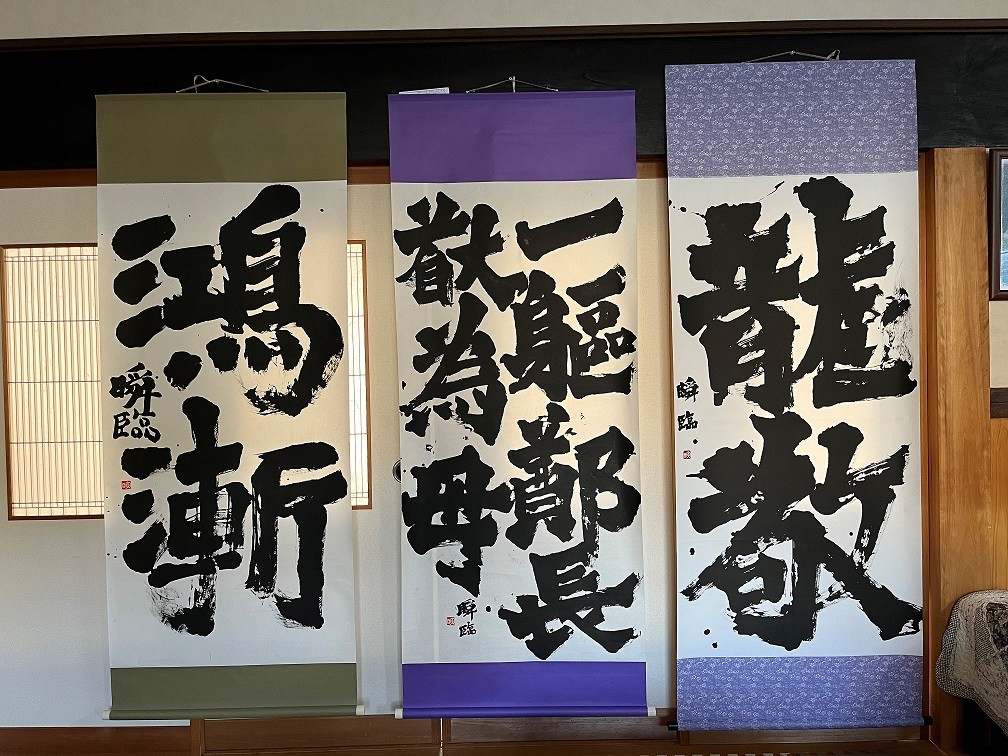 龍教
瞬臨
一軀鄭長
猷為母
瞬臨
鴻漸
瞬臨